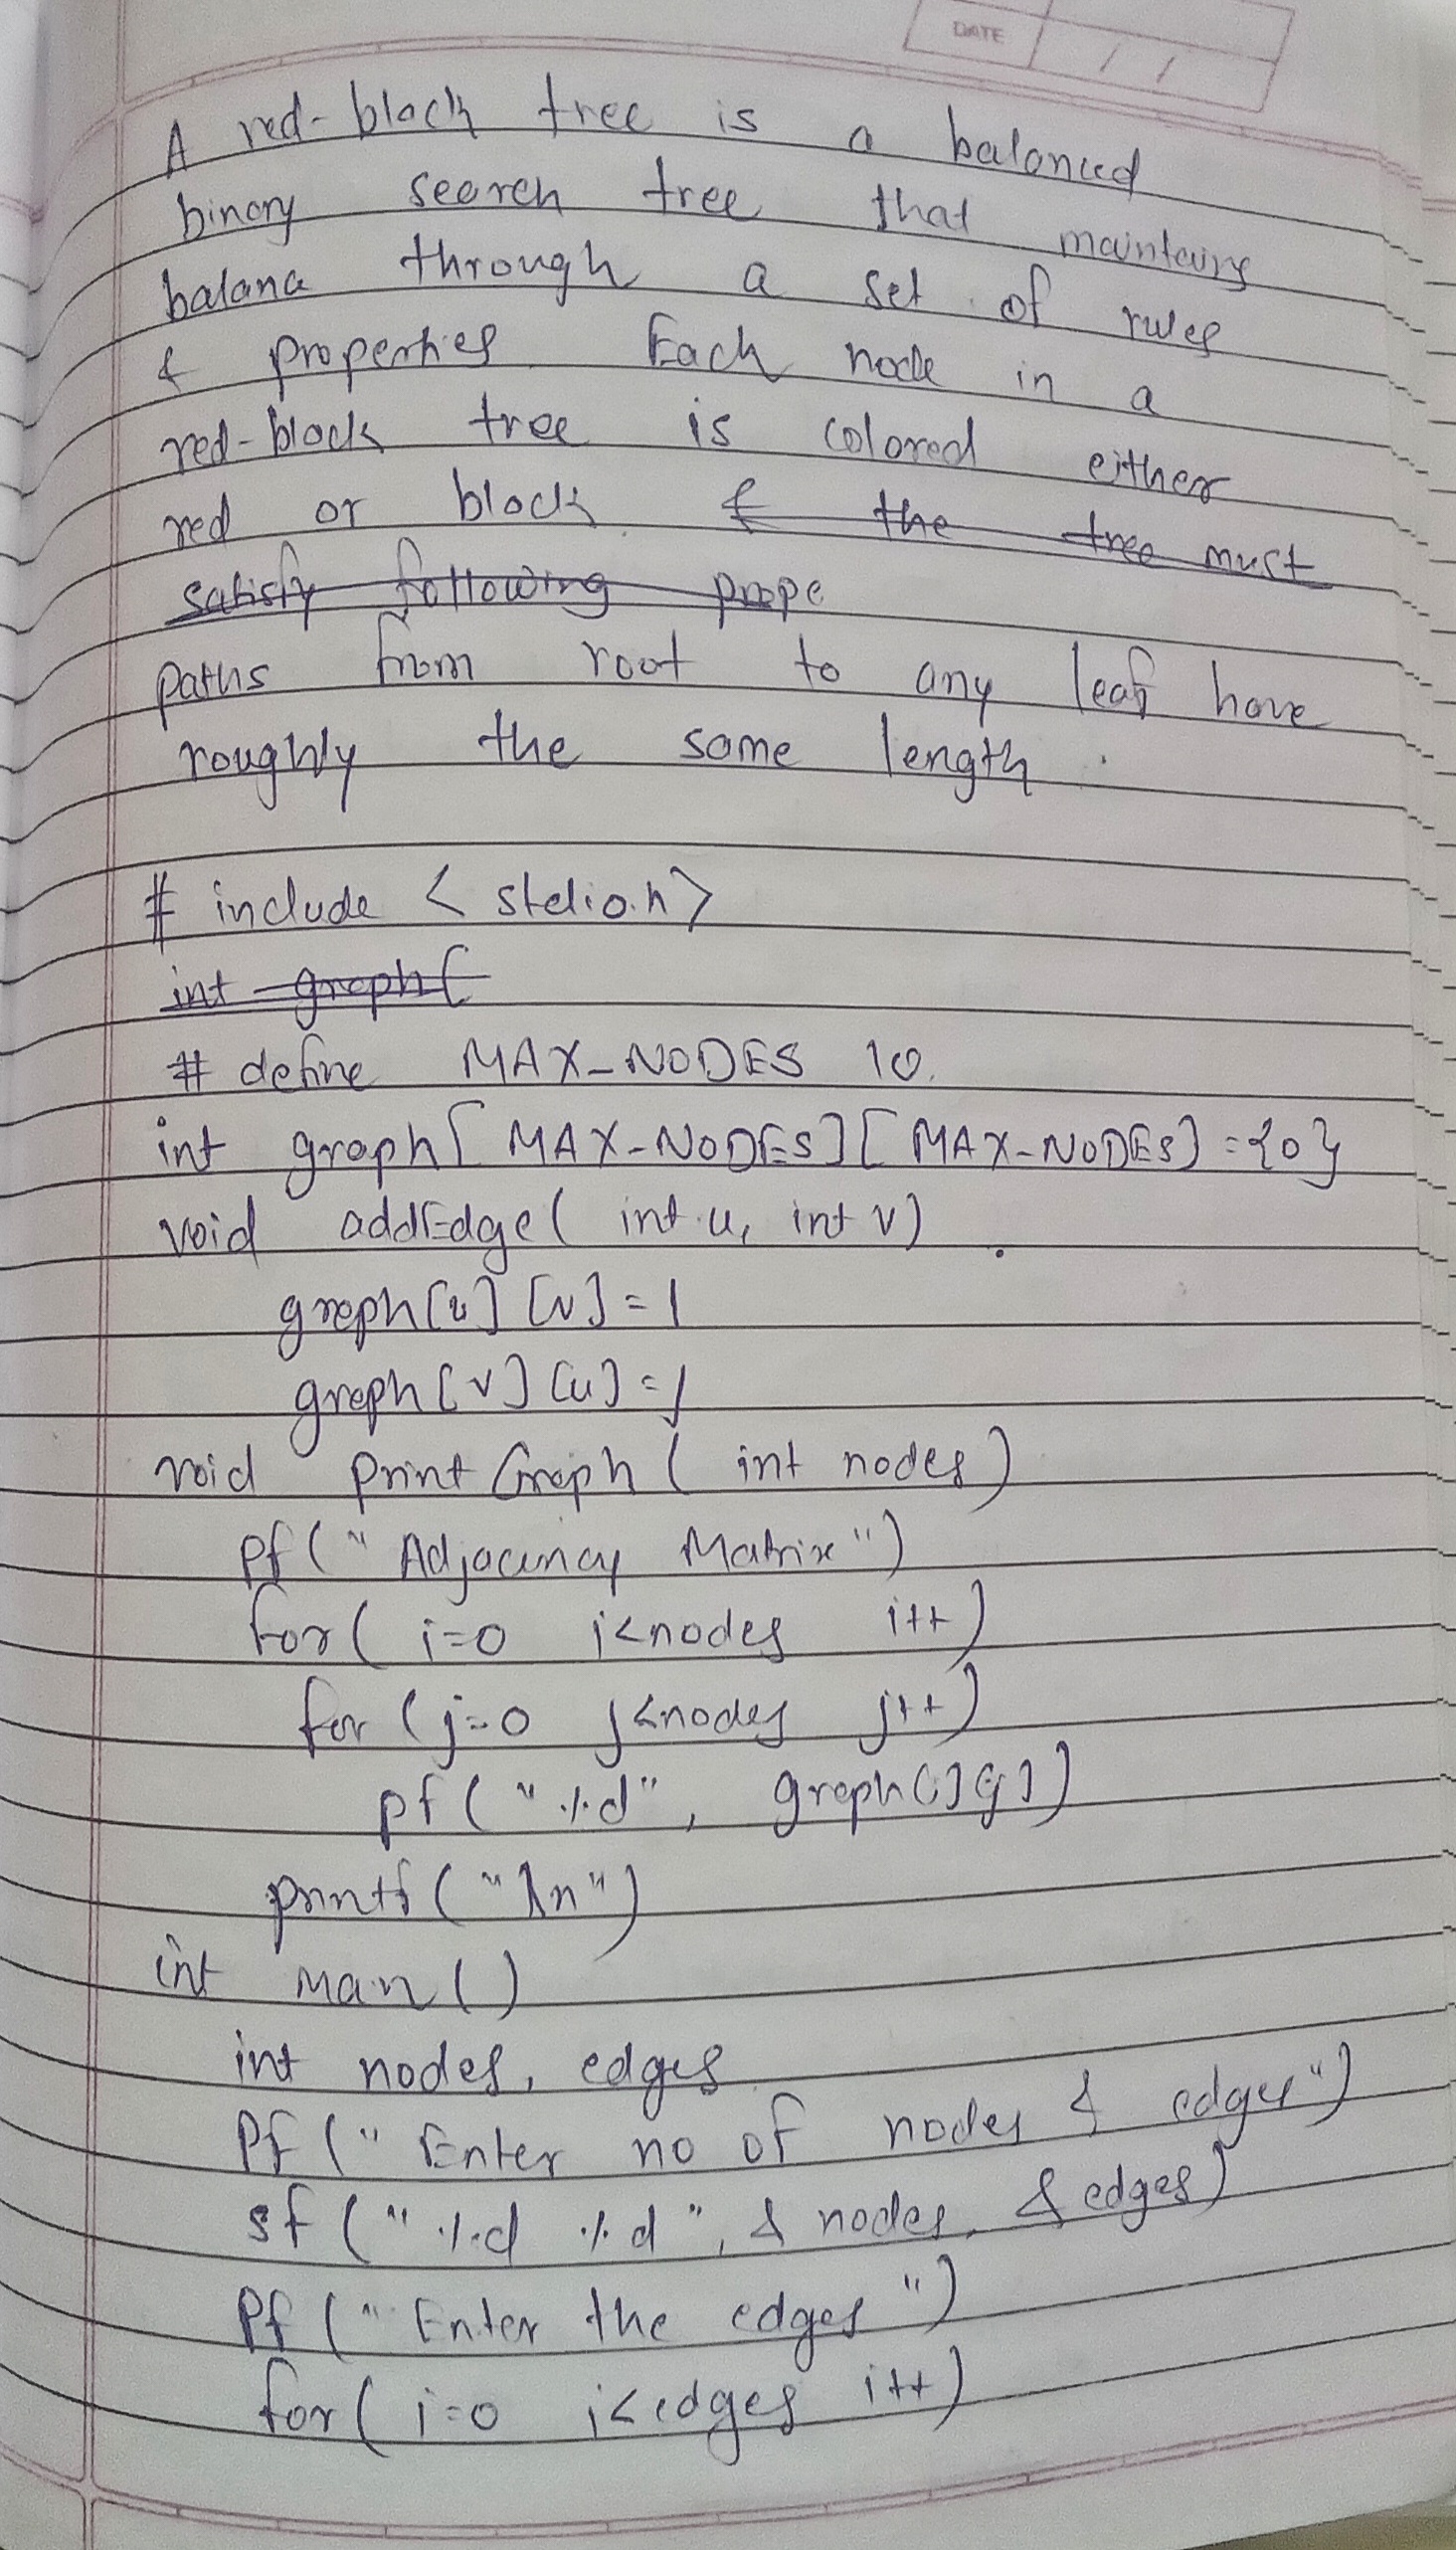 DATE / /
A red-black tree is a balanced
binary search tree that maintains
balance through a set of rules
& properties Each node in a
red-black tree is colored either
red or black & the tree must
satisfy following prope
paths from root to any leaf have
roughly the same length.
# include < stdio.h>
int graph[
# define MAX_NODES 10
int graph[MAX_NODES][MAX_NODES] = {0}
void addEdge( int u, int v)
graph[u][v] = 1
graph[v][u] = 1
void print Graph ( int nodes)
Pf(" Adjacency Matrix")
for( i=0 i<nodes i++)
for (j=0 j<nodes j++)
pf ( "%d", graph[i][j])
printf("\n")
int main()
int nodes, edges
Pf (" Enter no of nodes & edges")
sf ("%d %d", & nodes, & edges)
Pf (" Enter the edges ")
for( i=0 i<edges i++)